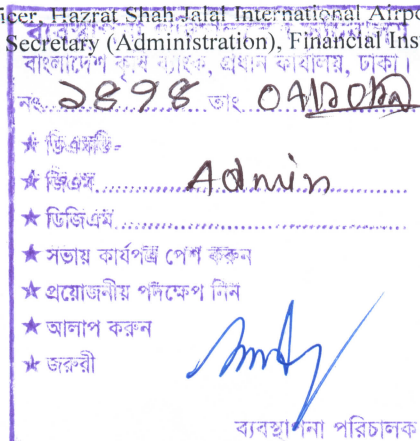 icer, Hazrat Shah Jalal International Airpo
Secretary (Administration), Financial Inst
বাংলাদেশ কৃষি ব্যাংক, প্রধান কার্যালয়, ঢাকা।
নং ১৪৭৪ তাং
★ ডিএমডি-
★ জিএম Admin
★ ডিজিএম
★ সভায় কার্যপত্র পেশ করুন
★ প্রয়োজনীয় পদক্ষেপ নিন
★ আলাপ করুন
★ জরুরী
ব্যবস্থাপনা পরিচালক